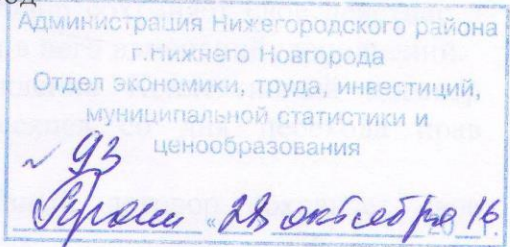 Администрация Нижегородского района
г.Нижнего Новгорода
Отдел экономики, труда, инвестиций,
муниципальной статистики и
ценообразования
№ 93
«28 октября 16 г.